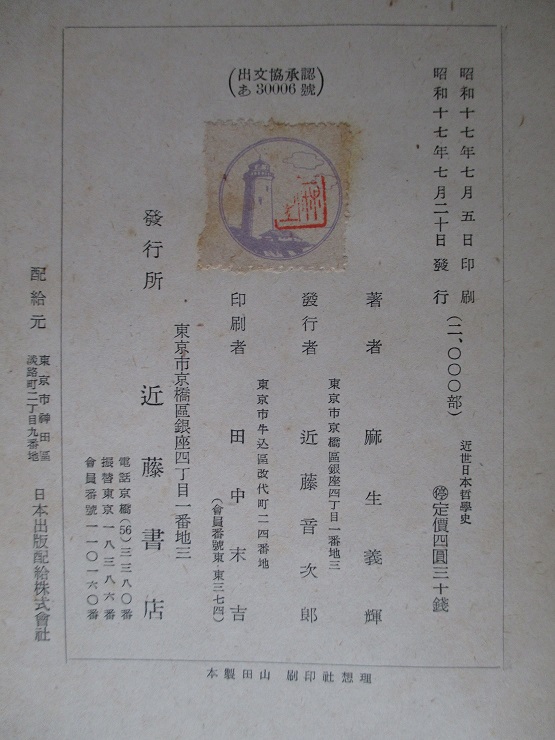 (出文協承認
あ30006號)
昭和十七年七月五日印刷
昭和十七年七月二十日發行(二、〇〇〇部)
近世日本哲學史
㊕定價四圓三十錢
著者 麻生義輝
東京市京橋區銀座四丁目一番地三
發行者 近藤音次郎
東京市牛込區改代町二四番地
印刷者 田中末吉
(會員番號東東三七四)
東京市京橋區銀座四丁目一番地三
發行所 近藤書店
電話京橋(56)三三八〇番
振替東京一八三八六番
會員番號一一〇一六〇番
配給元 東京市神田區
淡路町二丁目九番地
日本出版配給株式會社
理想社印刷 山田製本